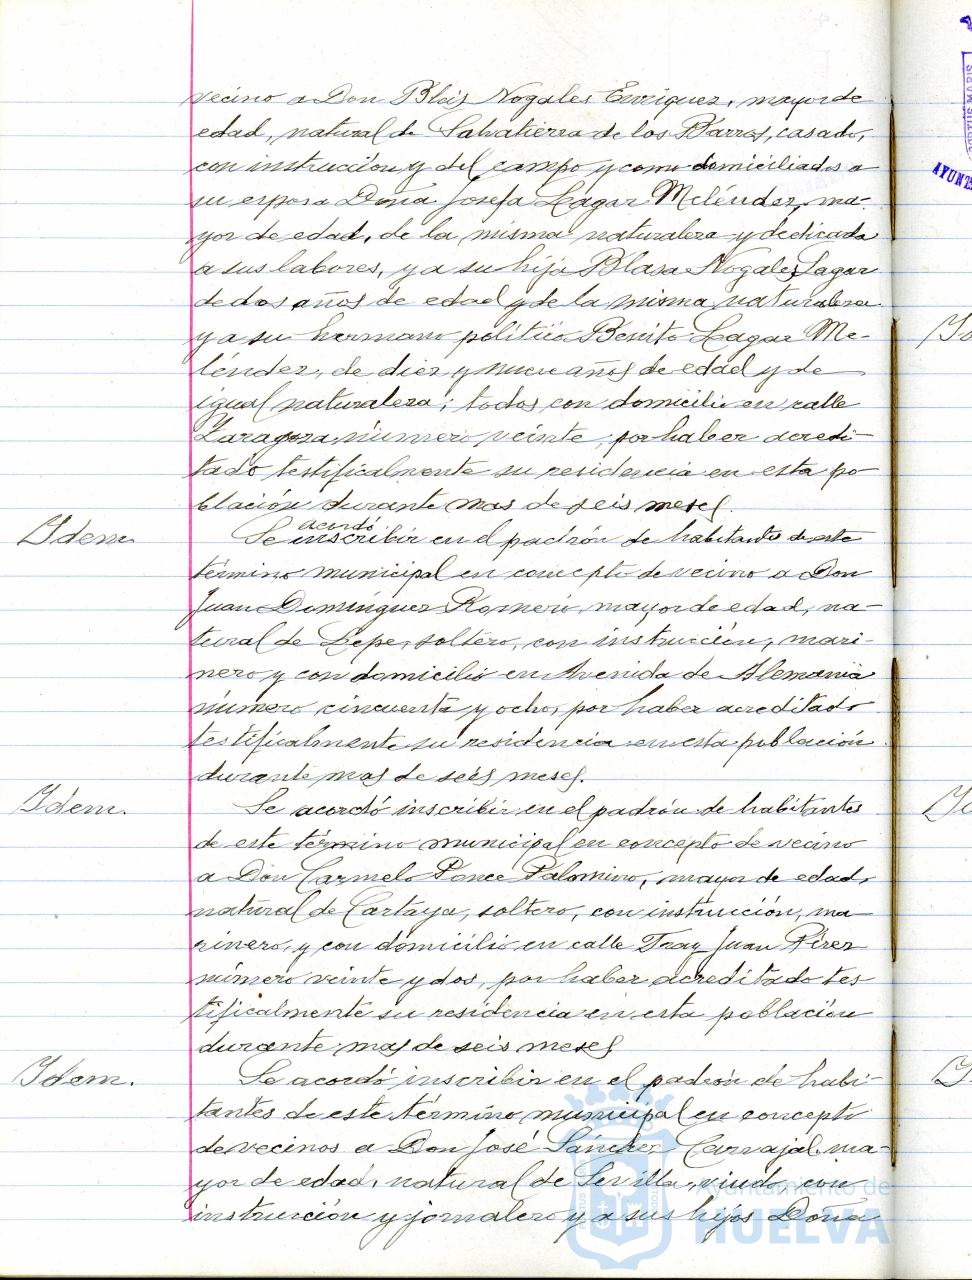 vecino a Don Blás Nogales Enriquez, mayor de
edad, natural de Salvatierra de los Barros, casado,
con instrucción y del campo y como domiciliados a
su esposa Doña Josefa Lagar Meléndez, ma-
yor de edad, de la misma naturaleza y dedicada
a sus labores, y a su hija Blasa Nogales Lagar
de dos años de edad y de la misma naturaleza
y a su hermano político Benito Lagar Me-
léndez, de diez y nueve años de edad y de
igual naturaleza; todos con domicilio en calle
Zaragoza, número veinte, por haber acredi-
tado testificalmente su residencia en esta po-
blación durante mas de seis meses.
Idem.
Se acordó inscribir en el padrón de habitantes de este
término municipal en concepto de vecino a Don
Juan Domínguez Romero, mayor de edad, na-
tural de Lepe, soltero, con instrucción, mari-
nero y con domicilio en Avenida de Alemania
número cincuenta y ocho, por haber acreditado
testificalmente su residencia en esta población
durante mas de seis meses.
Idem.
Se acordó inscribir en el padrón de habitantes
de este término municipal en concepto de vecino
a Don Carmelo Ponce Palomino, mayor de edad,
natural de Cartaya, soltero, con instrucción, ma-
rinero, y con domicilio en calle Fray Juan Pérez
número veinte y dos, por haber acreditado tes
tificalmente su residencia en esta población
durante mas de seis meses
Idem.
Se acordó inscribir en el padrón de habi-
tantes de este término municipal en concepto
de vecinos a Don José Sánchez Carvajal, ma-
yor de edad, natural de Sevilla, viudo, con
instrucción y jornalero y a sus hijos Doña
Ayuntamiento de
HUELVA